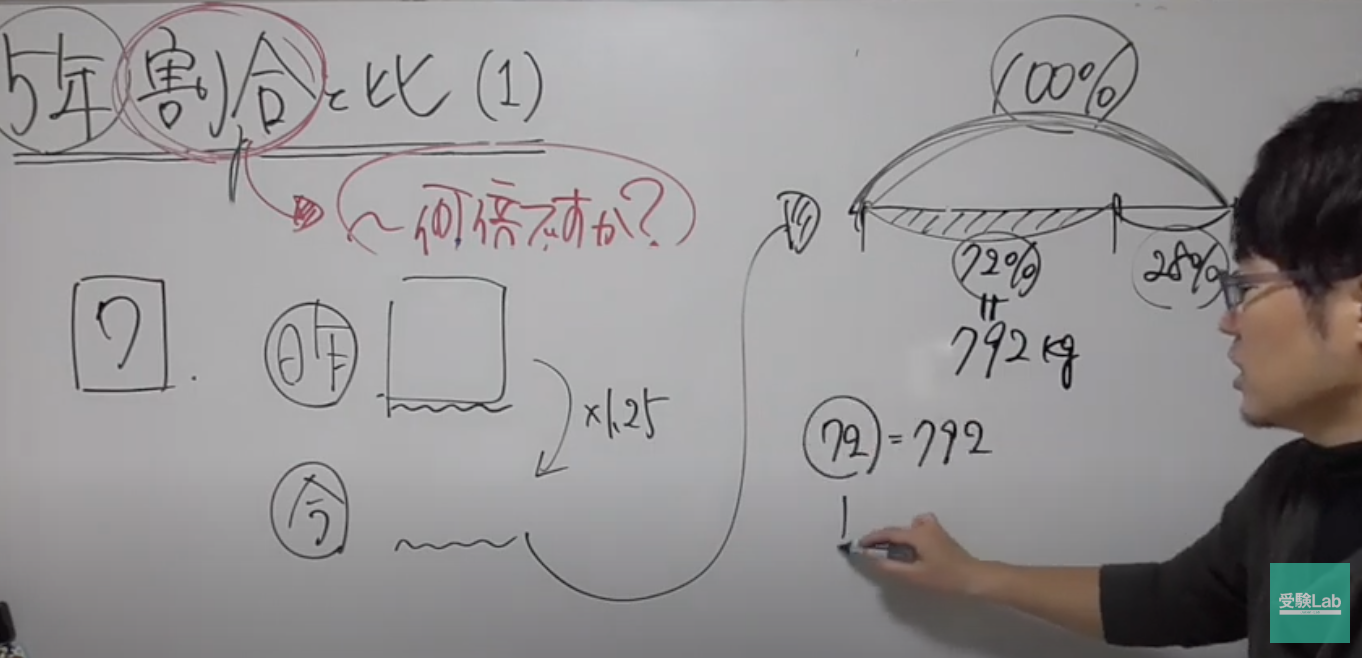 5年 割合と比 (1)
(~何倍ですか?)
7.
昨
×1.25
今
100%
72%
28%
=
792kg
72=792
1
受験Lab